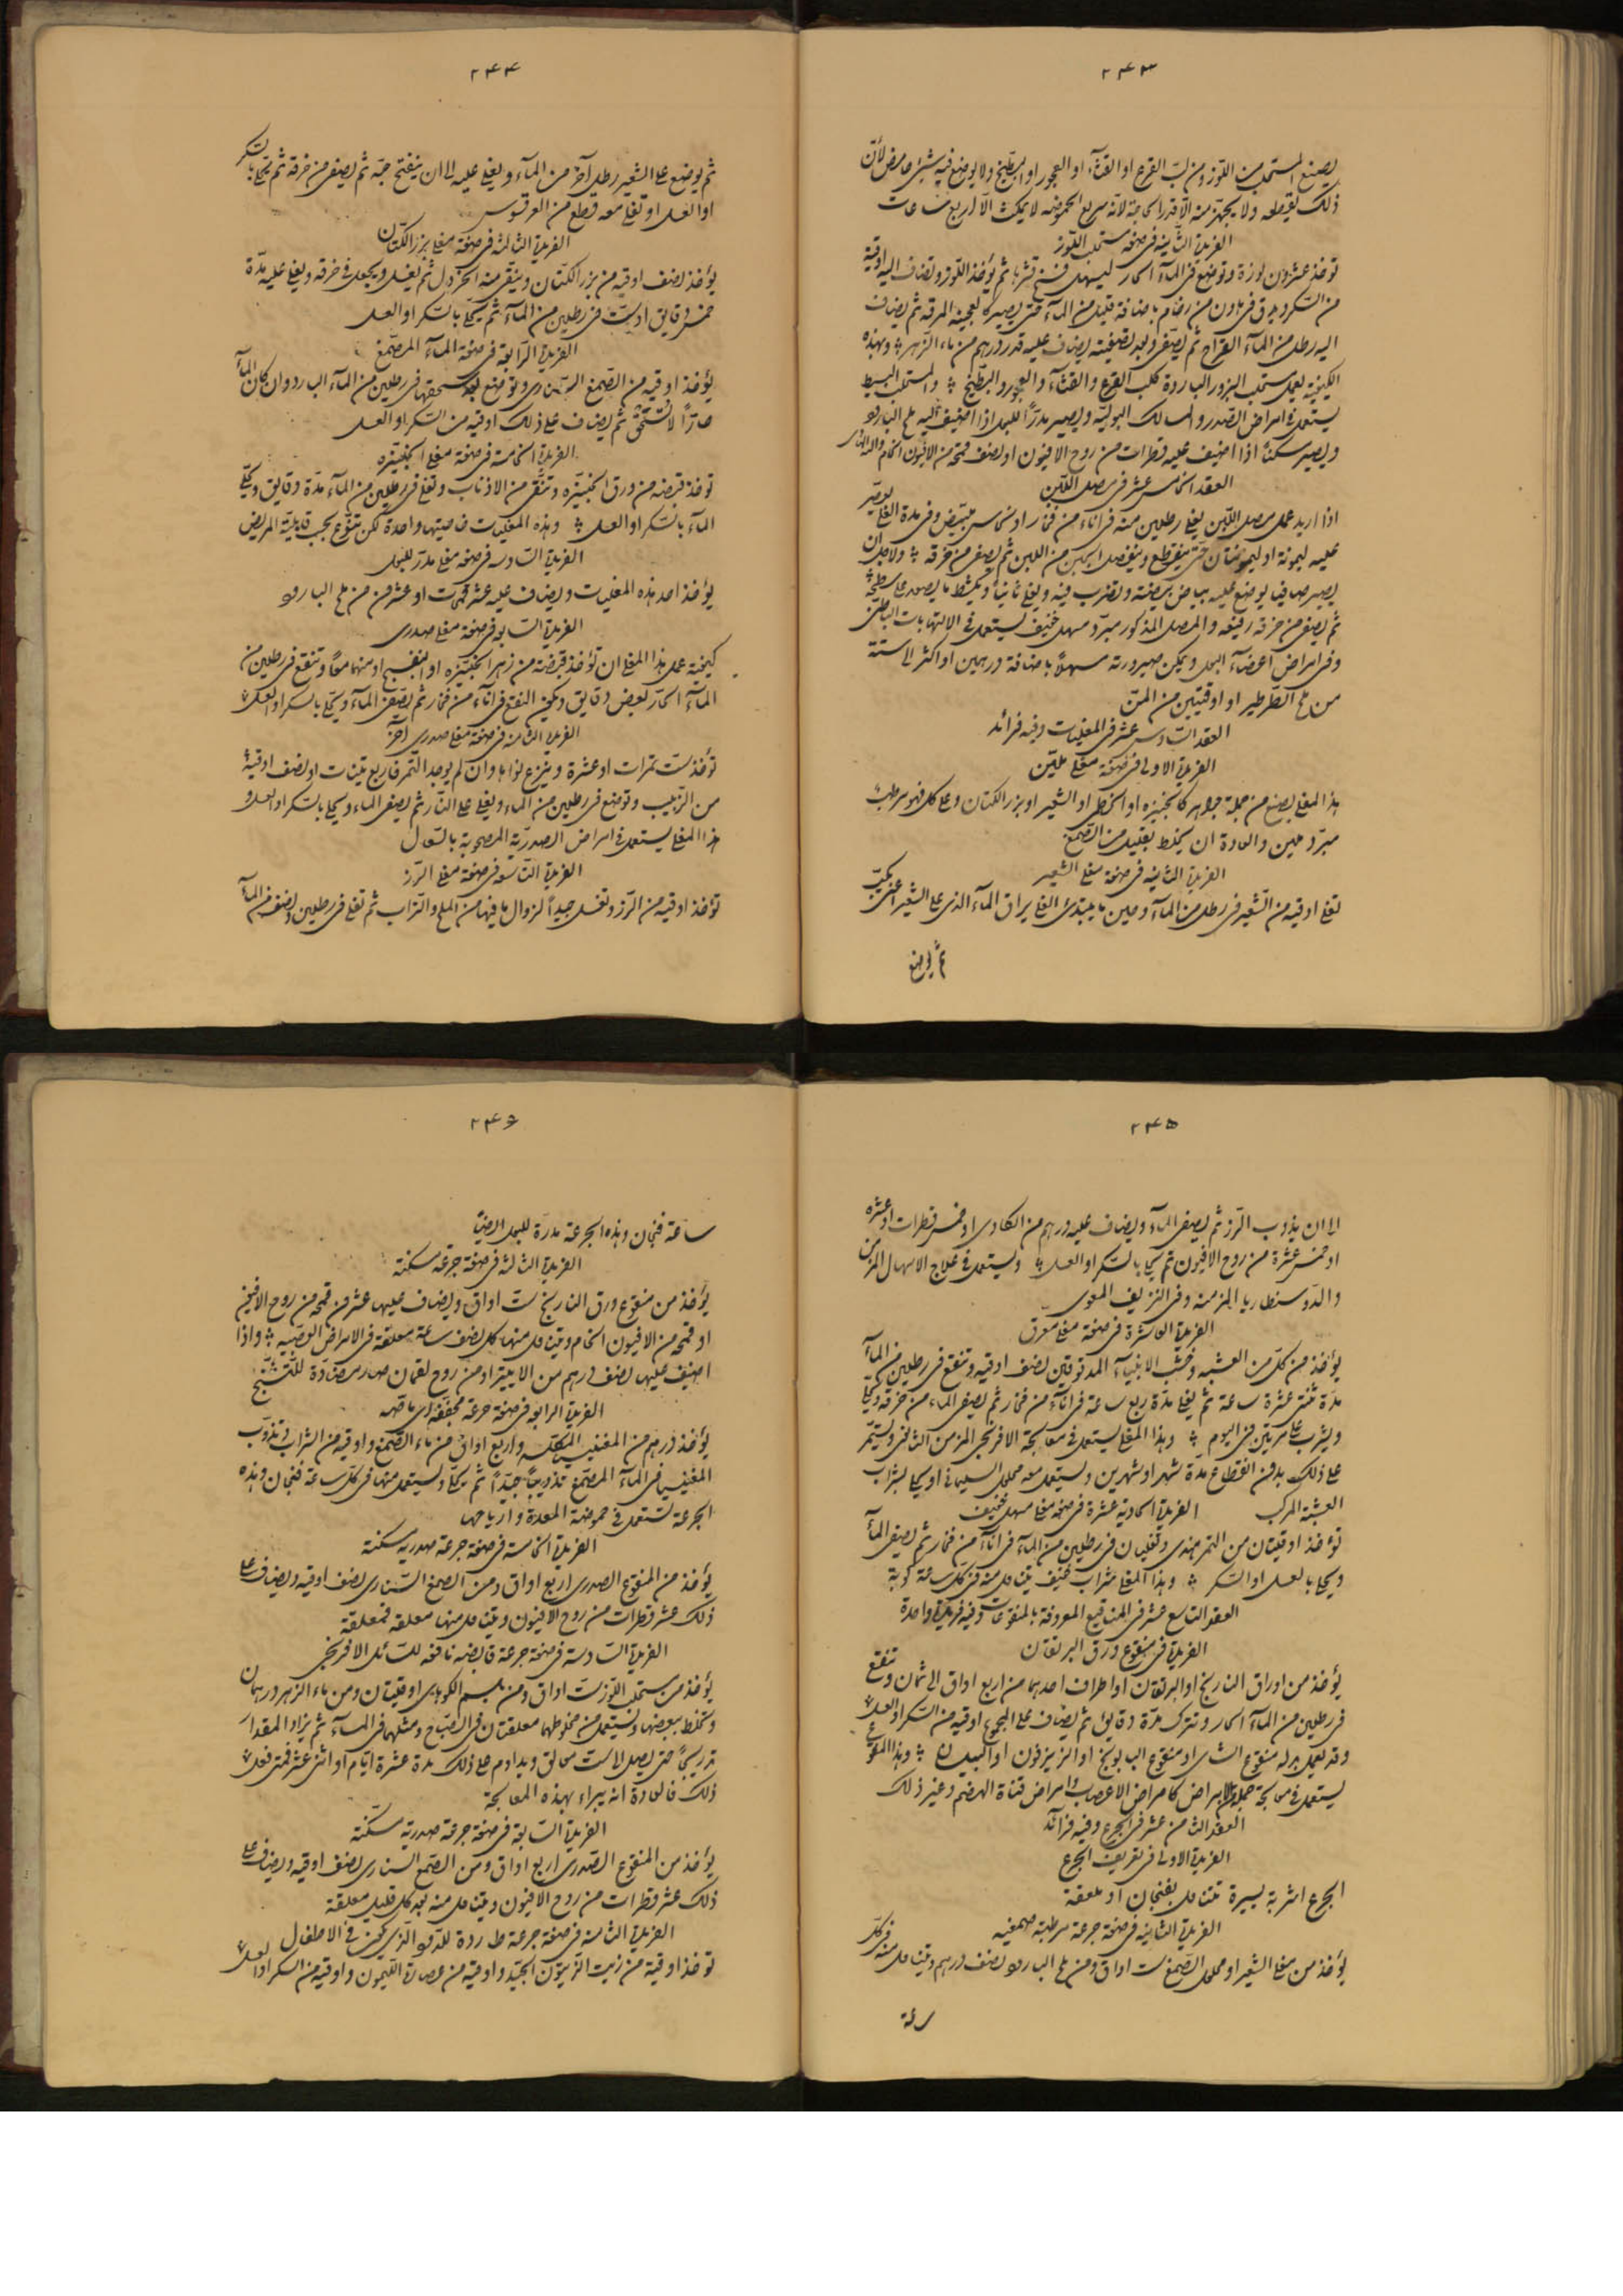 ٢٤٣
يصنع المستحلب من اللوز ومن لب القرع او القثاء او العجور او البطيخ ولا يوضع فيه شئ حامض لأن
ذلك يقطعه ولا يجهز منه الا قدر الحاجة لانه سريع الحموضه لا يمكث الا اربع ساعات
الفريدة الثانيه فى صفة مستحلب اللوز
توخذ عشرون لوزة وتوضع فى الماء الحار ليسهل فسخ قشرها ثم يؤخذ اللوز وتضاف اليه اوقية
من السكر ويدق فى هاون من رخام باضافة قليل من الماء حتى يصير كالعجينه المرقه ثم يضاف
اليه رطل من الماء القراح ثم يصفى وبعد تصفيته يضاف عليه قدر درهم من ماء الزهر وبهذه
الكيفية يعمل مستحلب البزور الباردة كلب القرع والقثاء والعجور والبطيخ والمستحلب البسيط
يستعمل فى امراض الصدر والمسالك البوليه ويصير مدرًا للبول اذا اضيف اليه ملح البارود
ويصير مسكنًا اذا اضيف عليه قطرات من روح الافيون او نصف قمحة من الافيون الخام
العقد الخامس عشر فى مصل اللبن
اذا اريد عمل مصل اللبن يغلى رطلين منه فى اناء من فخار او نحاس مبيض وفى مدة الغلى يوضع
عليه ليمونة او ليمونتان حتى يتقطع وينفصل الجبن من اللبن ثم يصفى من خرقه ولاجل ان
يصير صافيا يوضع عليه بياض بيضة وتضرب فيه ويغلى ثانيا ويكشط ما يصعد على سطحه
ثم يصفى من خرقه رفيعه والمصل المذكور مبرد مسهل خفيف يستعمل فى الالتهابات الباطنى
وفى امراض اعضاء البول ويمكن صيرورته مسهلًا باضافة درهمين او اكثر الى ستة
من ملح الطرطير او اوقيتين من المن
العقد السادس عشر فى المغليات وفيه فرائد
الفريدة الاولى فى صفة مغلى ملين
هذا المغلى يصنع من جملة جواهر كالخبيزه او الخطمى او الشعير او بزر الكتان وعلى كل فهو مرطب
مبرد ملين والعادة ان يخلط بقليل من الصمغ
الفريدة الثانيه فى صفة مغلى الشعير
تغلى اوقيه من الشعير فى رطل من الماء وحين ما يبتدئ الغلى يراق الماء الذى على الشعير اعنى يكب
ثم يوضع
٢٤٤
ثم يوضع على الشعير رطل آخر من الماء ويغلى عليه الى ان ينفتح حبه ثم يصفى من خرقة ثم يحلى بالسكر
او العسل او تغلى معه قطع من العرقسوس
الفريدة الثالثه فى صفة مغلى بزر الكتان
يؤخذ نصف اوقيه من بزر الكتان وينقى منه الخردل ثم يغسل ويجعل فى خرقه ويغلى عليه مدة
خمس دقايق او ست فى رطلين من الماء ثم يحلى بالسكر او العسل
الفريدة الرابعة فى صفة الماء المصمغ
يؤخذ اوقيه من الصمغ السنارى وتوضع بعد سحقها فى رطلين من الماء البارد وان كان الماء
حارًا لا تسحق ثم يضاف على ذلك اوقيه من السكر او العسل
الفريدة الخامسة فى صفة مغلى الخبيزه
توخذ قبضه من ورق الخبيزه وتنقى من الاذناب وتغلى فى رطلين من الماء مدة دقايق ويحلى
الماء بالسكر او العسل وهذه المغليات خاصيتها واحدة لكن تنوع بحسب قابلية المريض
الفريدة السادسه فى صفة مغلى مدر للبول
يؤخذ احد هذه المغليات ويضاف عليه عشر قمحات او عشرون من ملح البارود
الفريدة السابعه فى صفة مغلى صدرى
كيفية عمل هذا المغلى ان تؤخذ قبضة من زهر الخبيزه او البنفسج او منهما معًا وتنقع فى رطلين من
الماء الحار بعض دقايق ويكون النقع فى اناء من فخار ثم يصفى الماء ويحلى بالسكر او العسل
الفريدة الثامنه فى صفة مغلى صدرى آخر
تؤخذ ست تمرات او عشرة وينزع نواها وان لم يوجد التمر فاربع تينات او نصف اوقية
من الزبيب وتوضع فى رطلين من الماء ويغلى على النار ثم يصفى الماء ويحلى بالسكر او العسل و
هذا المغلى يستعمل فى امراض الصدرية المصحوبة بالسعال
الفريدة التاسعه فى صفة مغلى الرز
تؤخذ اوقيه من الرز وتغسل جيدًا لزوال ما فيها من الملح والتراب ثم تغلى فى رطلين ونصف من الماء
٢٤٥
الى ان يذوب الرز ثم يصفى الماء ويضاف عليه درهم من الكاد الهندى او خمس قطرات او عشرة
او خمس عشرة من روح الافيون ثم يحلى بالسكر او العسل ويستعمل فى علاج الاسهال المزمن
والدوسنطاريا المزمنه وفى النزيف المعوى
الفريدة العاشرة فى صفة مغلى معرق
يؤخذ من كل من العشبه وخشب الانبياء المدقوقين نصف اوقيه وتنقع فى رطلين من الماء
مدة ثنتى عشرة ساعة ثم يغلى مدة ربع ساعة فى اناء من فخار ثم يصفى الماء من خرقه ويحلى
ويشرب على مرتين فى اليوم وهذا المغلى يستعمل فى معالجة الافرنجى المزمن الثانى ويستمر
على ذلك بدون انقطاع مدة شهر او شهرين ويستعمل معه محلول السليمانى او يحلى بشراب
العشبة المركب الفريدة الحادية عشرة فى صفة مغلى مسهل خفيف
تؤخذ اوقيتان من التمر هندى وتغليان فى رطلين من الماء فى اناء من فخار ثم يصفى الماء
ويحلى بالعسل او السكر وهذا المغلى شراب خفيف يتناول منه فى كل ساعة كوبة
العقد التاسع عشر فى المناقيع المعروفة بالمنقوعات وفيه فريدة واحدة
الفريدة فى منقوع ورق البرتقان
يؤخذ من اوراق النارنج او البرتقان او اطراف احدهما من اربع اواق الى ثمان وتنقع
فى رطلين من الماء الحار وتترك مدة دقايق ثم يضاف على المجموع اوقيه من السكر او العسل
وقد يعمل بدله منقوع الشاى او منقوع البابونج او الزيزفون او البيلسان وهذا المنقوع
يستعمل فى معالجة جملة من الامراض كامراض الاعصاب وامراض قناة الهضم وغير ذلك
العقد الثامن عشر فى الجرع وفيه فرائد
الفريدة الاولى فى تعريف الجرع
الجرع اشربة يسيرة تتناول بفنجان او ملعقة
الفريدة الثانيه فى صفة جرعة مرطبة صمغيه
يؤخذ من مغلى الشعير او محلول الصمغ ست اواق ومن ملح البارود نصف درهم ويتناول منه فى كل
ساعة
٢٤٦
ساعة فنجان وهذه الجرعة مدرة للبول ايضًا
الفريدة الثالثه فى صفة جرعة مسكنة
يؤخذ من منقوع ورق النارنج ست اواق ويضاف عليها عشرون قمحه من روح الافيون
او قمحه من الافيون الخام ويتناول منها كل نصف ساعة ملعقة فى الامراض العصبيه واذا
اضيف عليها نصف درهم من الايتير او من روح لقمان صارت مضادة للتشنج
الفريدة الرابعه فى صفة جرعة مجففة اى ماصه
يؤخذ درهم من المغنيسيا المكلسه واربع اواق من ماء الصمغ واوقيه من الشراب وتذوب
المغنيسيا فى الماء المصمغ تذويبًا جيدًا ثم يحلى ويستعمل منها فى كل ساعة فنجان وهذه
الجرعة تستعمل فى حموضة المعدة وارياحها
الفريدة الخامسة فى صفة جرعة صدريه مسكنة
يؤخذ من المنقوع الصدرى اربع اواق ومن الصمغ السنارى نصف اوقيه ويضاف على
ذلك عشر قطرات من روح الافيون ويتناول منها ملعقه فملعقة
الفريدة السادسة فى صفة جرعة قابضه نافعه للسائل الافرنجى
يؤخذ من مستحلب اللوز ست اواق ومن بلسم الكوباى اوقيتان ومن ماء الزهر درهمان
وتخلط ببعضها ويستعمل من مخلوطهما ملعقتان فى الصباح ومثلهما فى المساء ثم يزاد المقدار
تدريجًا حتى يصل الى ست معالق ويداوم على ذلك مدة عشرة ايام او اثنى عشر فمتى فعل
ذلك فالعادة انه يبراء بهذه المعالجة
الفريدة السابعة فى صفة جرعة صدرية مسكنة
يؤخذ من المنقوع الصدرى اربع اواق ومن الصمغ السنارى نصف اوقيه ويضاف على
ذلك عشر قطرات من روح الافيون ويتناول منه بعد كل قليل ملعقة
الفريدة الثامنة فى صفة جرعة طاردة للدود الذى يكون فى الاطفال
توخذ اوقية من زيت الزيتون الجيد واوقيه من عصارة الليمون واوقيه من السكر او العسل